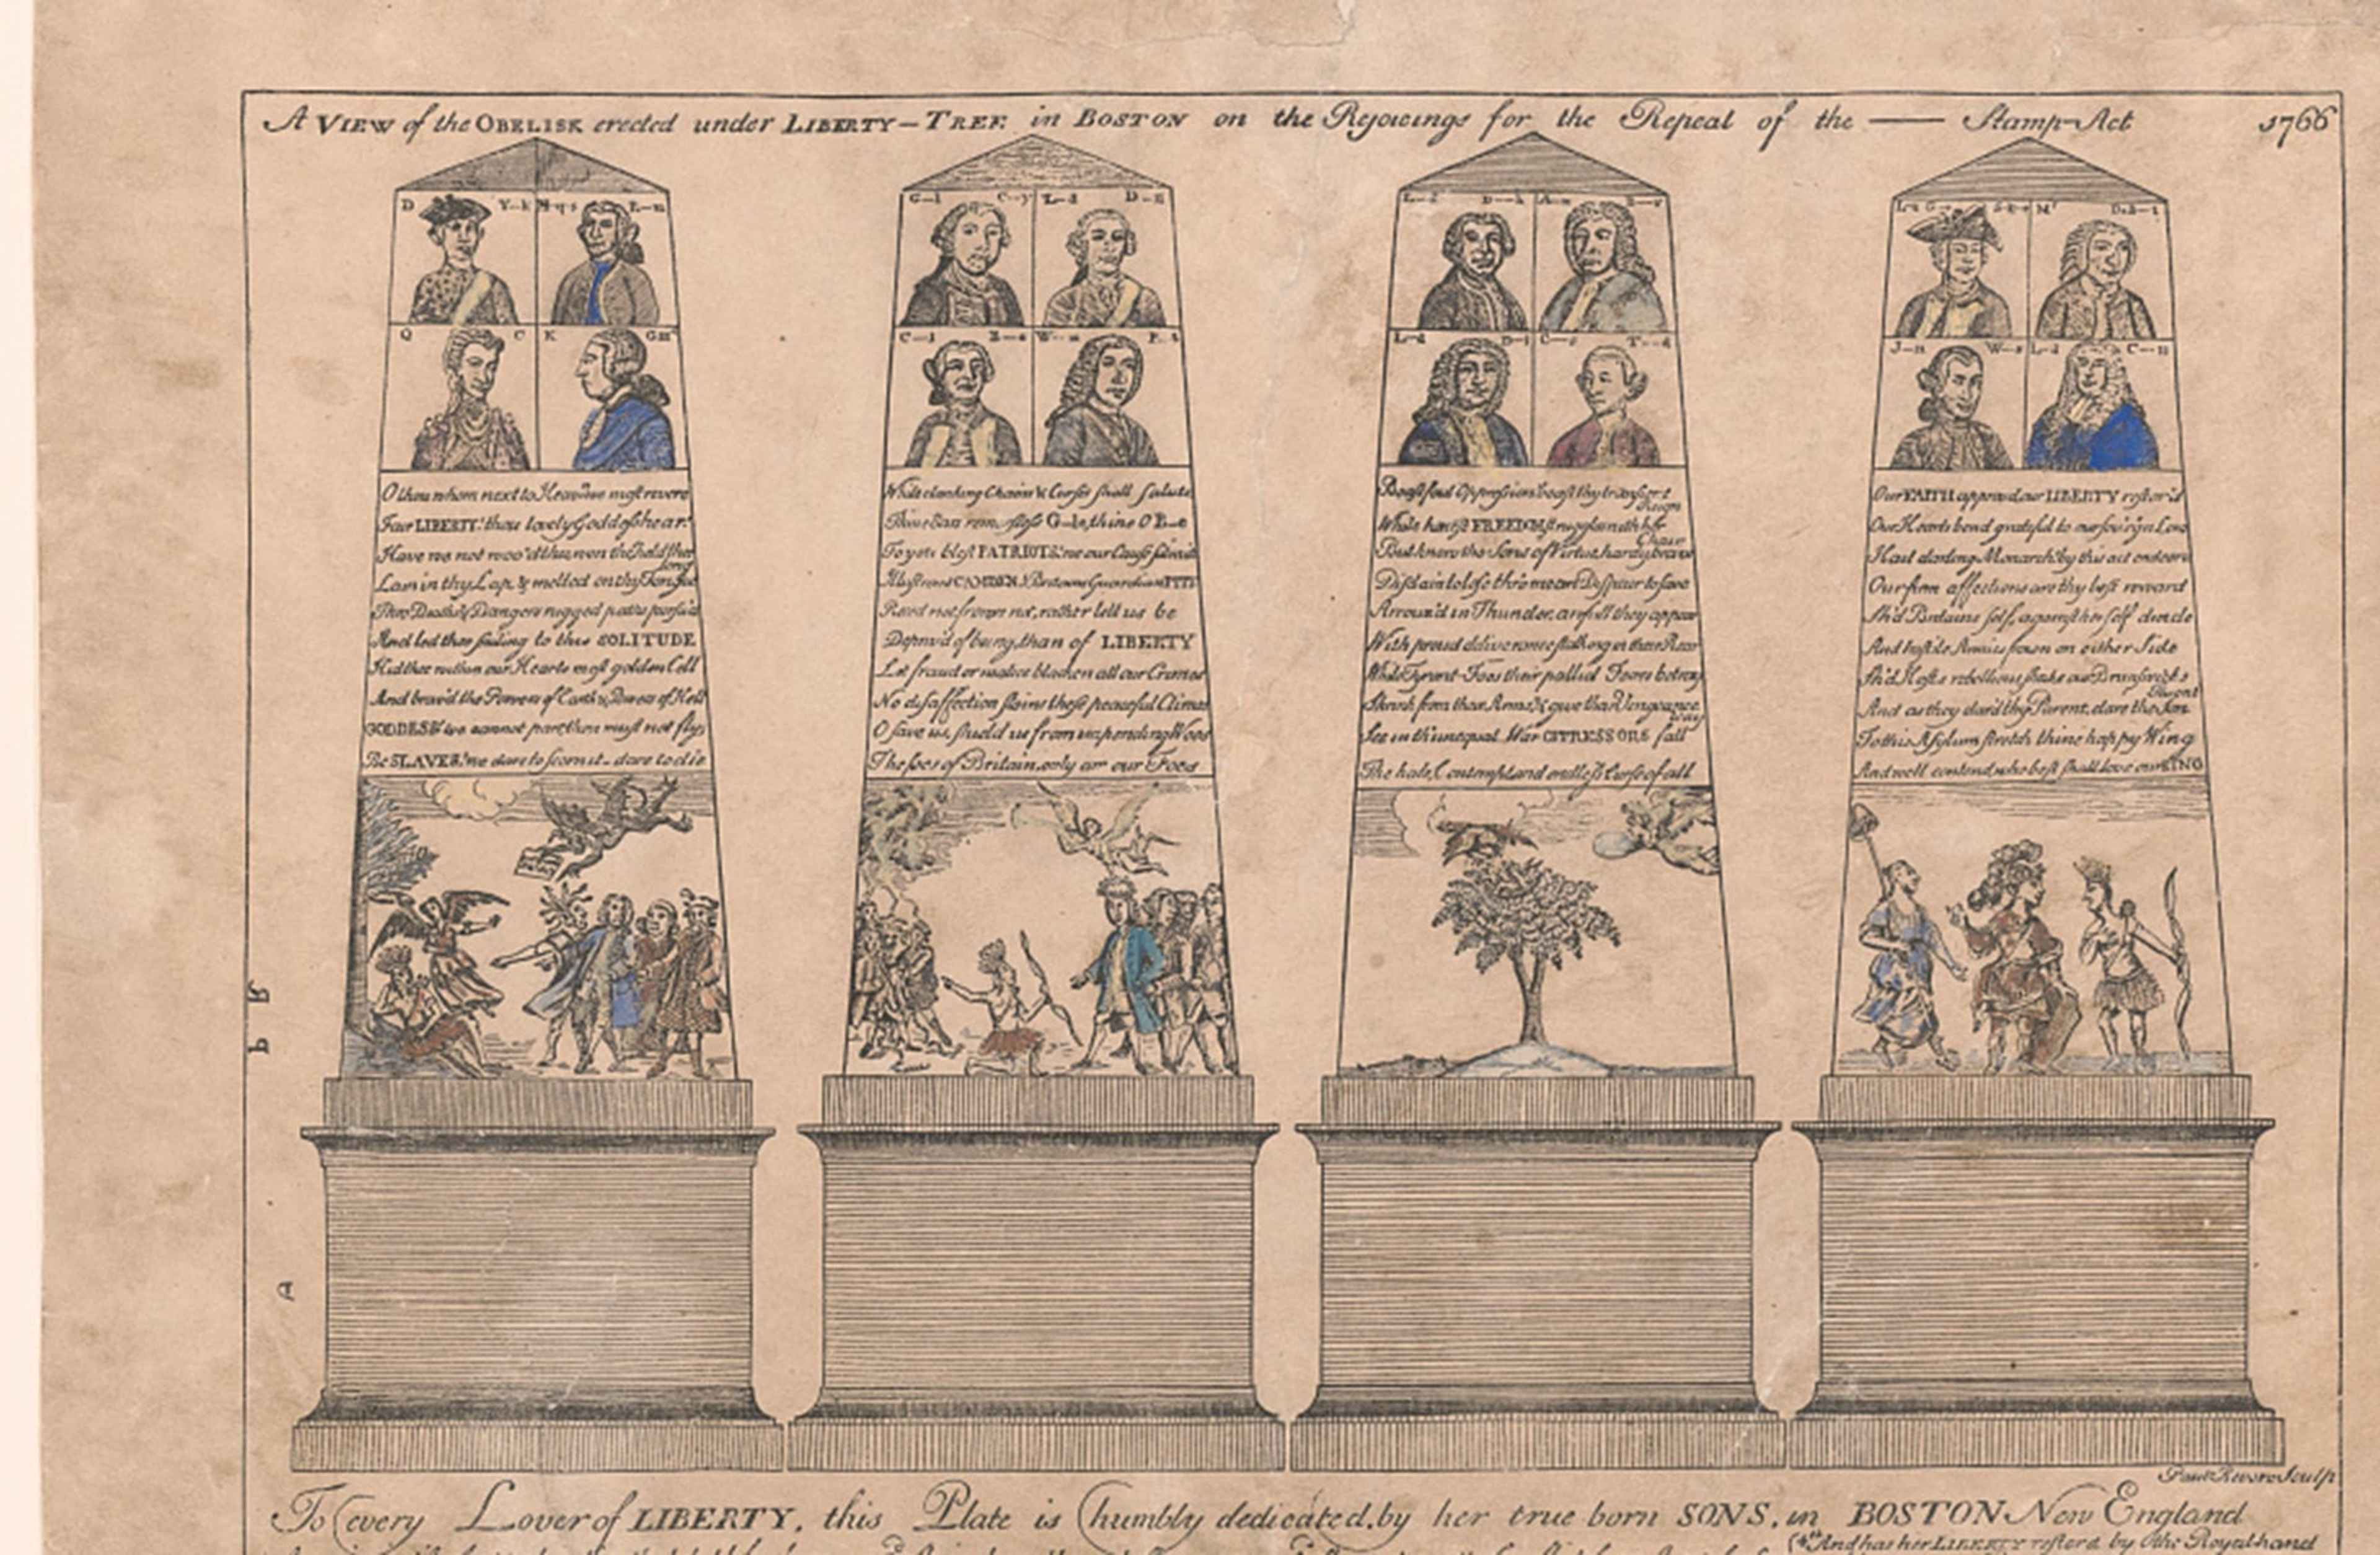 A VIEW of the OBELISK erected under LIBERTY-TREE in BOSTON on the Rejoicings for the Repeal of the —— Stamp-Act 1766
D Y--k M-q-s R--m
Q C K G III
O thou whom next to Heav'n we most revere
Fair LIBERTY! thou lovely Goddess hear!
Have we not woo'd thee, won thee, held thee long
Lain in thy Lap & melted on thy Tongue
Thro Deaths & Dangers rugged paths pursu'd
And led thee smiling to this SOLITUDE
Hid thee within our Hearts most golden Cell
And brav'd the Powers of Earth & Powers of Hell
GODDESS! we cannot part, thou must not fly,
Be SLAVES! we dare to scorn it - dare to die
G--l C--y L--d
C--l B--e W--m P--t
While clanking Chains & Curses shall salute
Thine Ears remorseless G--le, thine O B--e
To you blest PATRIOTS! we our Cause submit
Illustrious CAMDEN, & Britains Guardian PITT
Recede not, frown not, rather let us be
Depriv'd of being, than of LIBERTY
Let fraud or malice blacken all our Crimes
No disaffection stains these peaceful Climes
O save us, shield us from impending Woes
The foes of Britain, only are our Foes
L--d A--n
L--d D--l C--s T--d
Boast foul Oppression! boast thy transient Reign
While honest FREEDOM struggles with her Chain
But know the Sons of Virtue, hardy brave
Disdain to lose thro mean Dispair to save
Arrow'd in Thunder, awfull they appear
With proud deliverance stalking in their Rear
While Tyrant-Foes their pallid Fears betray
Shrink from their Arms, & give their Vengeance way
See in th' unequal War OPPRESSORS fall
The hate, Contempt, and endless Curse of all
Mr D-b--t
J--n W--s L--d C--n
Our FAITH approv'd our LIBERTY restor'd
Our Hearts bend grateful to our sov'rign Lord
Hail darling Monarch! by this act endear'd
Our firm affections are thy best reward
Sh'd Britains self, against herself divide
And hostile Armies frown on either Side
Sh'd Hosts rebellious, shake our Brunswick's Throne
And as they dar'd thy Parent, dare the Son
To this Asylum stretch thine happy Wing
And we'll contend, who best shall love our KING
Paul Revere Sculp
To every Lover of LIBERTY, this Plate is humbly dedicated, by her true born SONS, in BOSTON New England
And has her LIBERTY restord by the Royal hand